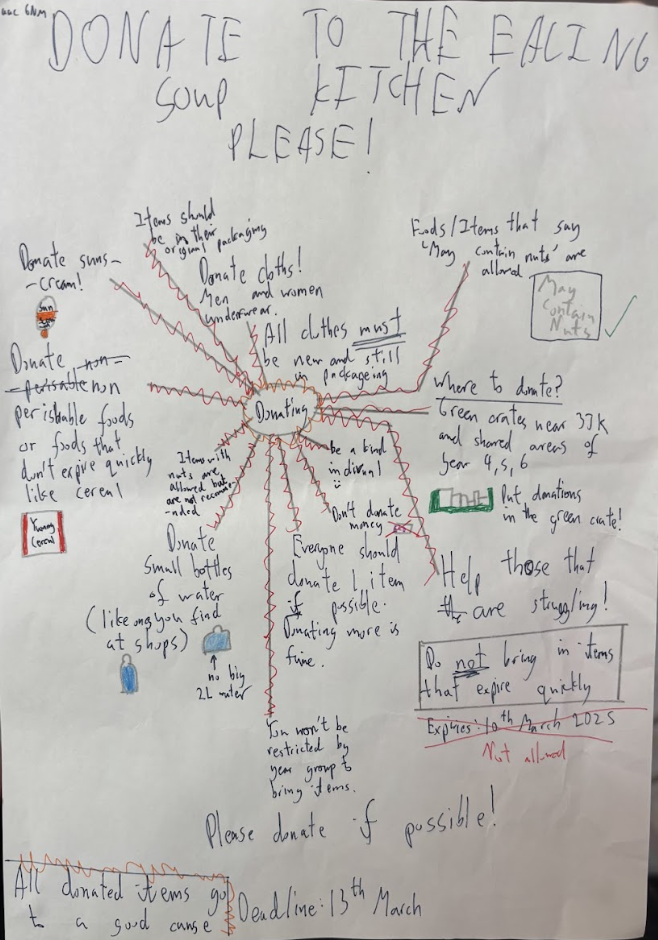 6NM
DONATE TO THE EALING
SOUP KITCHEN
PLEASE!
Items should
be in their
original packaging
Donate suns-
-cream!
Sun
Donate cloths!
Men and women
underwear.
All clothes must
be new and still
in packageing
Foods/Items that say
'May contain nuts' are
allowed
May
Contain
Nuts
Donate non-
-perisable non
perishable foods
or foods that
don't expire quickly
like cereal
Yummy
Cereal
Donating
Where to donate?
Green crates near 3JK
and shared areas of
year 4, 5, 6
Put donations
in the green crate!
Items with
nuts are
allowed but
are not recomme-
-nded
be a kind
individual
Don't donate
money
Donate
small bottles
of water
(like ones you find
at shops)
no big
2L water
Everyone should
donate 1 item
if possible.
Donating more is
fine.
Help those that
the are struggling!
Do not bring in items
that expire quickly
Expires: 10th March 2025
Not allowed
You won't be
restricted by
year group to
bring items.
Please donate if possible!
All donated items go
to a good cause
Deadline: 13th March